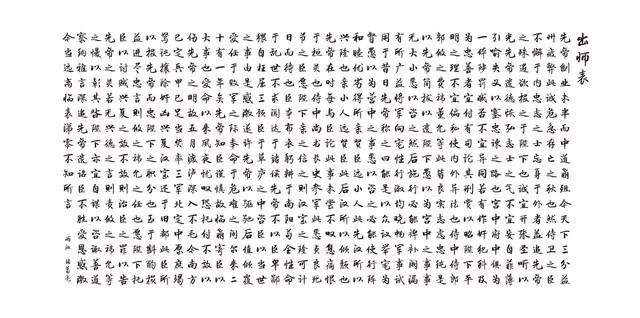 出师表
先帝创业未半而中道崩殂今天下三分益
州疲弊此诚危急存亡之秋也然侍卫之臣
不懈于内忠志之士忘身于外者盖追先帝
之殊遇欲报之于陛下也诚宜开张圣听以
光先帝遗德恢弘志士之气不宜妄自菲薄
引喻失义以塞忠谏之路也宫中府中俱为
一体陟罚臧否不宜异同若有作奸犯科及
为忠善者宜付有司论其刑赏以昭陛下平
明之理不宜偏私使内外异法也侍中侍郎
郭攸之费祎董允等此皆良实志虑忠纯是
以先帝简拔以遗陛下愚以为宫中之事事
无大小悉以咨之然后施行必能裨补阙漏
有所广益将军向宠性行淑均晓畅军事试
用于昔日先帝称之曰能是以众议举宠为
督愚以为营中之事悉以咨之必能使行阵
和睦优劣得所亲贤臣远小人此先汉所以
兴隆也亲小人远贤臣此后汉所以倾颓也
先帝在时每与臣论此事未尝不叹息痛恨
于桓灵也侍中尚书长史参军此悉贞良死
节之臣愿陛下亲之信之则汉室之隆可计
日而待也臣本布衣躬耕于南阳苟全性命
于乱世不求闻达于诸侯先帝不以臣卑鄙
猥自枉屈三顾臣于草庐之中咨臣以当世
之事由是感激遂许先帝以驱驰后值倾覆
受任于败军之际奉命于危难之间尔来二
十有一年矣先帝知臣谨慎故临崩寄臣以
大事也受命以来夙夜忧叹恐托付不效以
伤先帝之明故五月渡泸深入不毛今南方
已定兵甲已足当奖率三军北定中原庶竭
驽钝攘除奸凶兴复汉室还于旧都此臣所
以报先帝而忠陛下之职分也至于斟酌损
益进尽忠言则攸之祎允之任也愿陛下托
臣以讨贼兴复之效不效则治臣之罪以告
先帝之灵若无兴德之言则责攸之祎允等
之慢以彰其咎陛下亦宜自谋以咨诹善道
察纳雅言深追先帝遗诏臣不胜受恩感激
今当远离临表涕零不知所言
两汉 诸葛亮